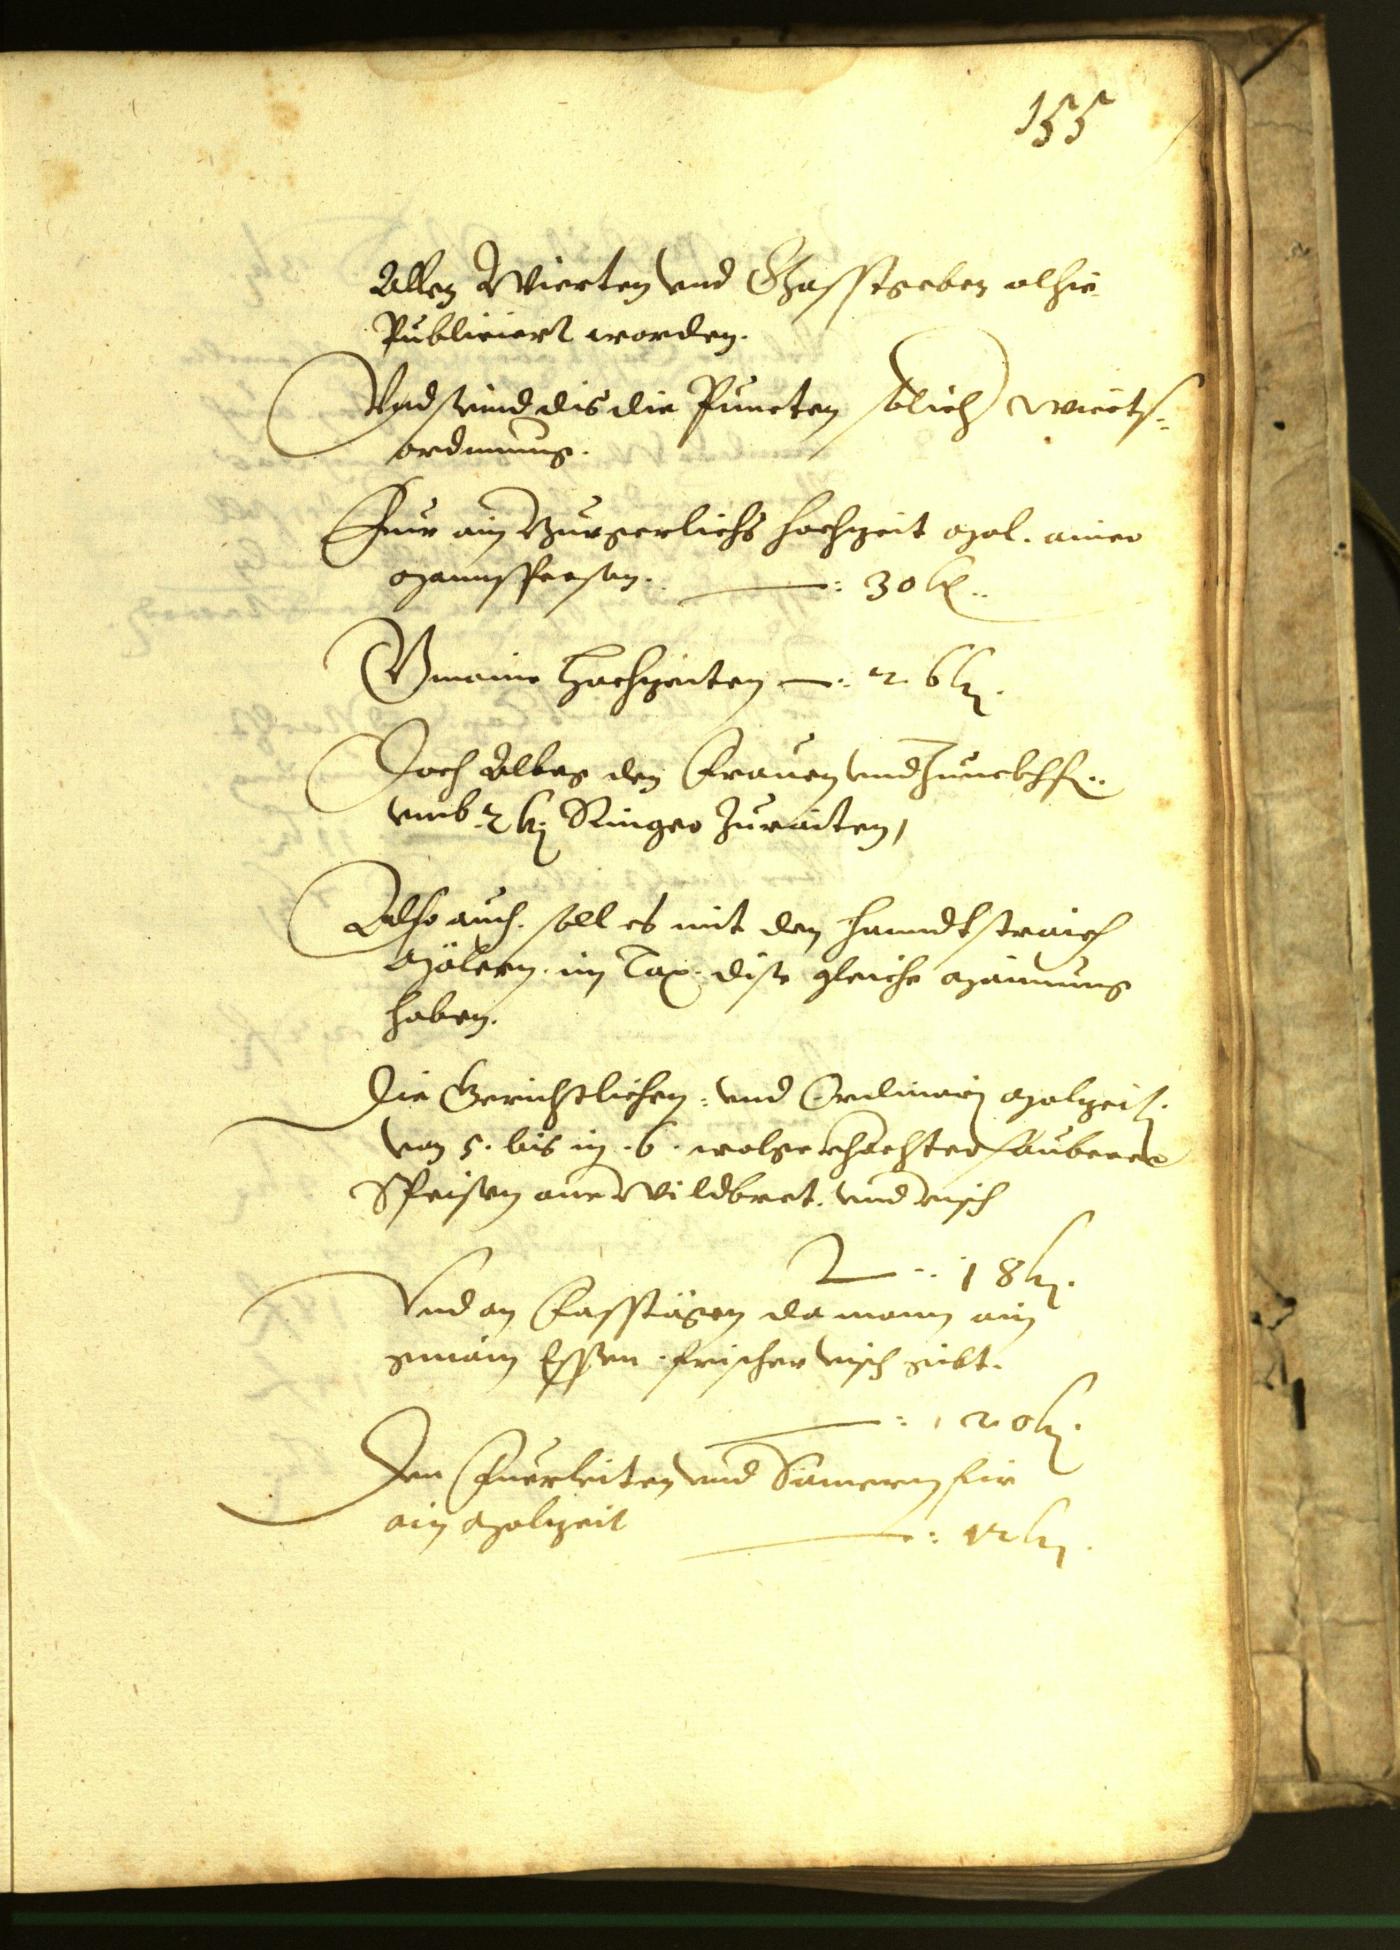 155
Allen Wierten vnd Ghasstgeben alhie
Publiciert worden.
Vnd seind dis die Puncten solicher Wierts-
ordnnung.
Fuir ain Burgerlichs Hochzeit mal. ainer
mannsperson. —: 30 kr.
Gmaine Hochzeiten —: 26 kr.
Doch Alles den Frauen vnd Junckhf:
vmb 2 kr Ringer Zuraiten,
Also auch. soll es mit den Hanndtstraich
Mälern. im Tax. dise gleiche mainung
haben.
Die Gerichtlichen: vnd Ordinari malzeit.
von 5. bis in. 6. wolgekhochter sauberer
Speisen aus Wildbret. vnd visch
—: 18 kr.
Vnd an Fasstägen da mann ain
gmain Essen. frischer visch gibt.
—: 20 kr.
Den Fuerleiten vnd Sämern für
ain malzeit —: 12 kr.